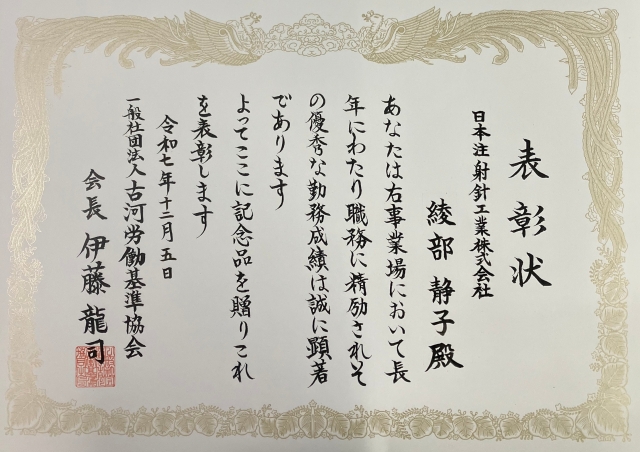 表彰状
日本注射針工業株式会社
綾部 静子殿
あなたは右事業場において長
年にわたり職務に精励されそ
の優秀な勤務成績は誠に顕著
であります
よってここに記念品を贈りこれ
を表彰します
令和七年十二月五日
一般社団法人古河労働基準協会
会長 伊藤 龍司